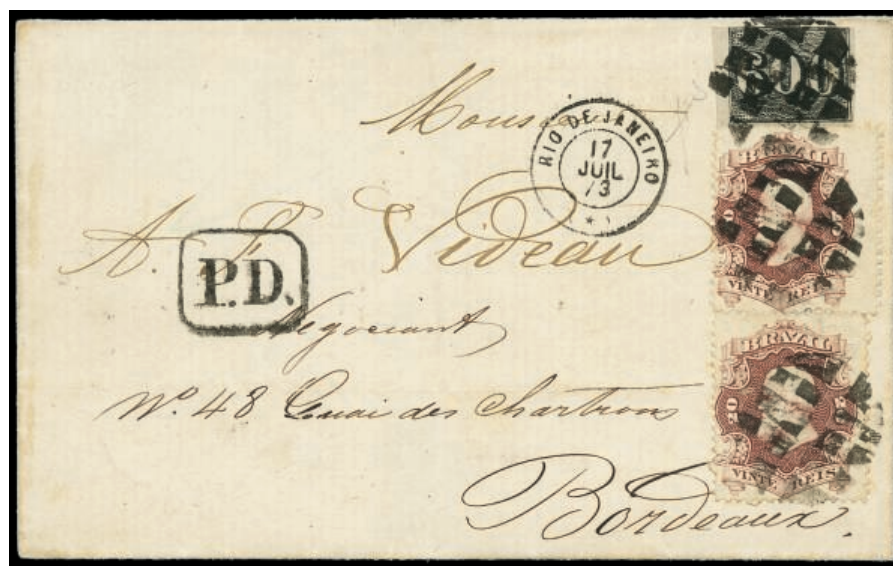 600
Monsieur
RIO DE JANEIRO
17
JUIL
73
A. F. Videau
P.D.
Négociant
Nº 48 Quai des Chartrons
Bordeaux.
BRAZIL
20
VINTE REIS
BRAZIL
20 20
VINTE REIS